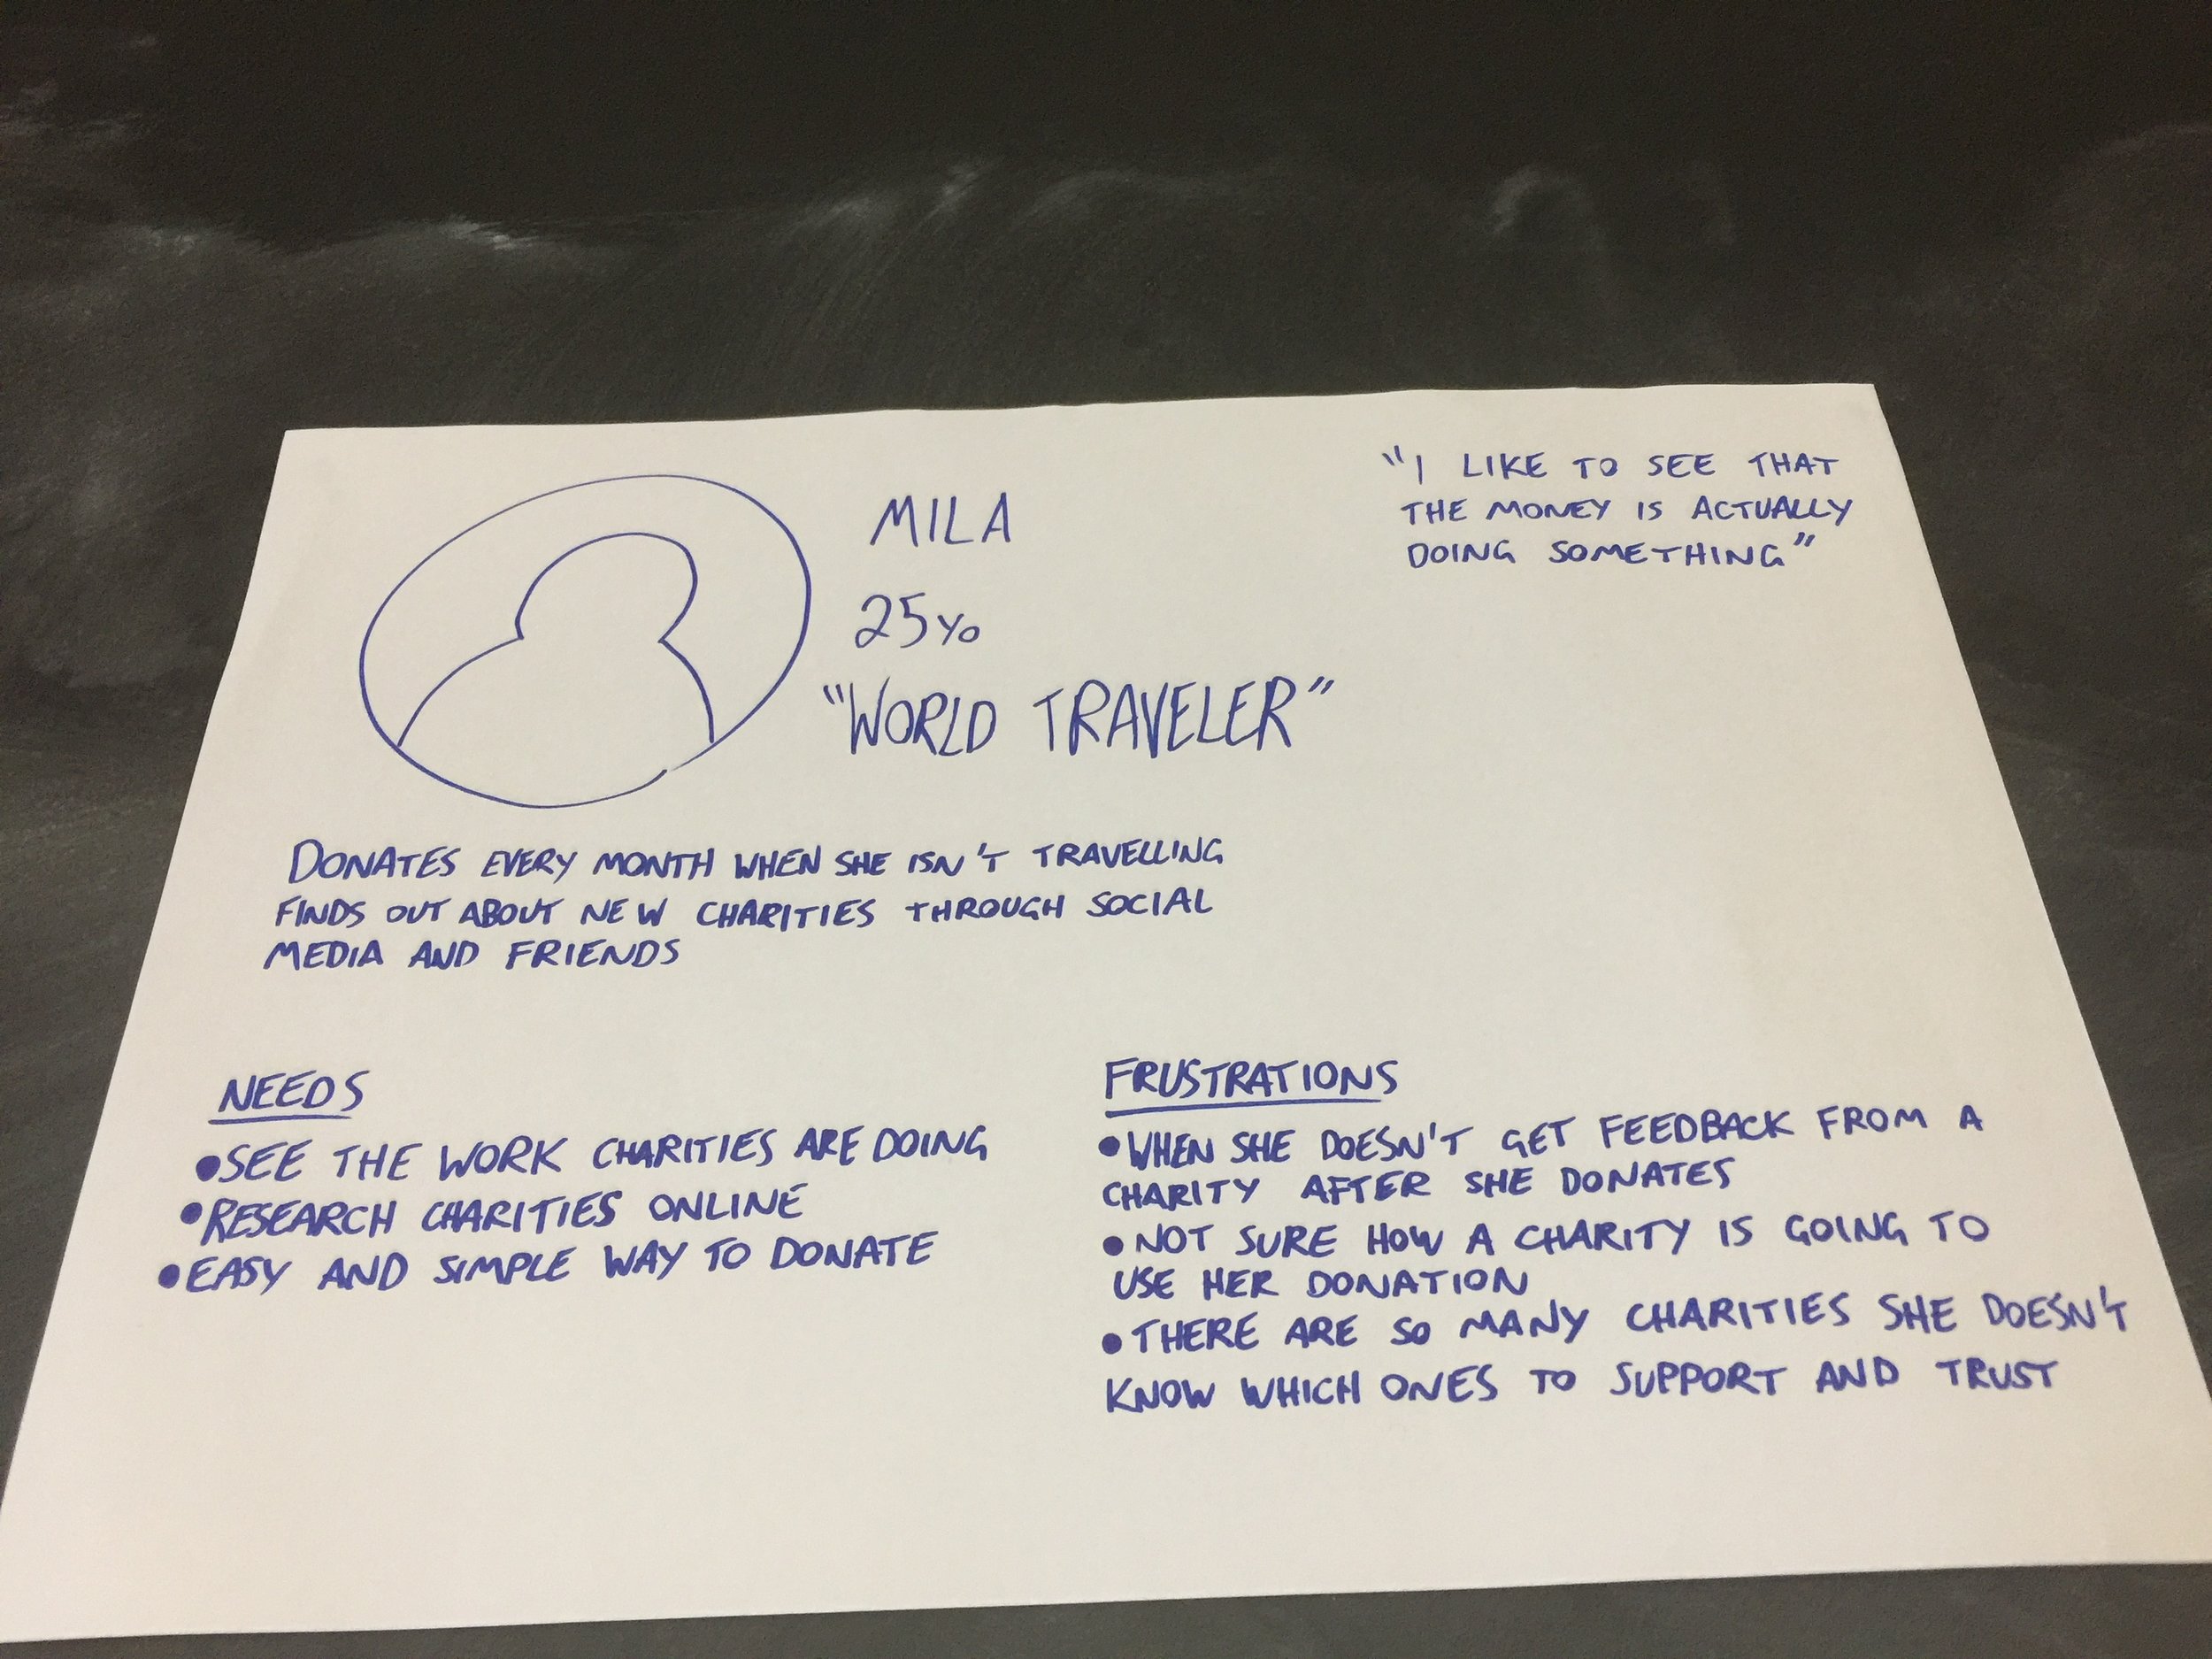 MILA
25yo
"WORLD TRAVELER"
"I LIKE TO SEE THAT
THE MONEY IS ACTUALLY
DOING SOMETHING"
DONATES EVERY MONTH WHEN SHE ISN'T TRAVELLING
FINDS OUT ABOUT NEW CHARITIES THROUGH SOCIAL
MEDIA AND FRIENDS
NEEDS
•SEE THE WORK CHARITIES ARE DOING
•RESEARCH CHARITIES ONLINE
•EASY AND SIMPLE WAY TO DONATE
FRUSTRATIONS
•WHEN SHE DOESN'T GET FEEDBACK FROM A
CHARITY AFTER SHE DONATES
•NOT SURE HOW A CHARITY IS GOING TO
USE HER DONATION
•THERE ARE SO MANY CHARITIES SHE DOESN'T
KNOW WHICH ONES TO SUPPORT AND TRUST